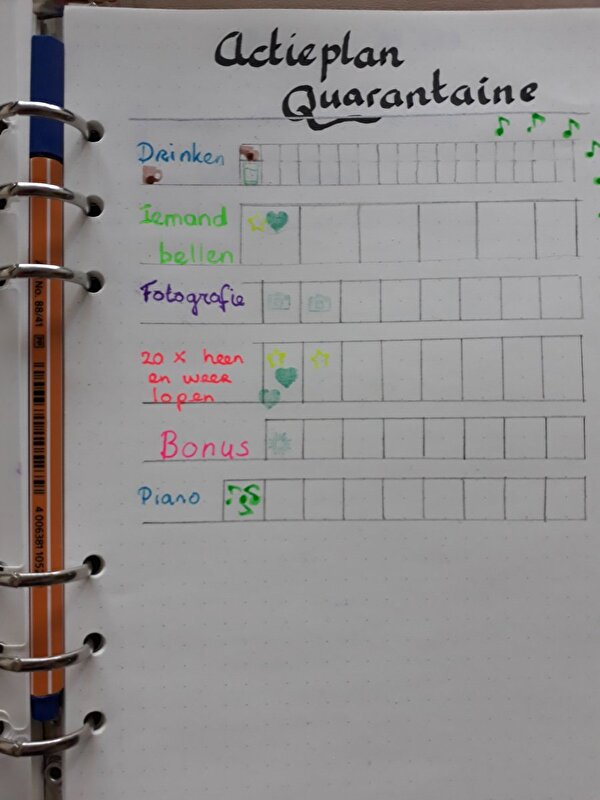 Actieplan
Quarantaine
Drinken
Iemand
bellen
Fotografie
20 x heen
en weer
lopen
Bonus
Piano
No. 88/41